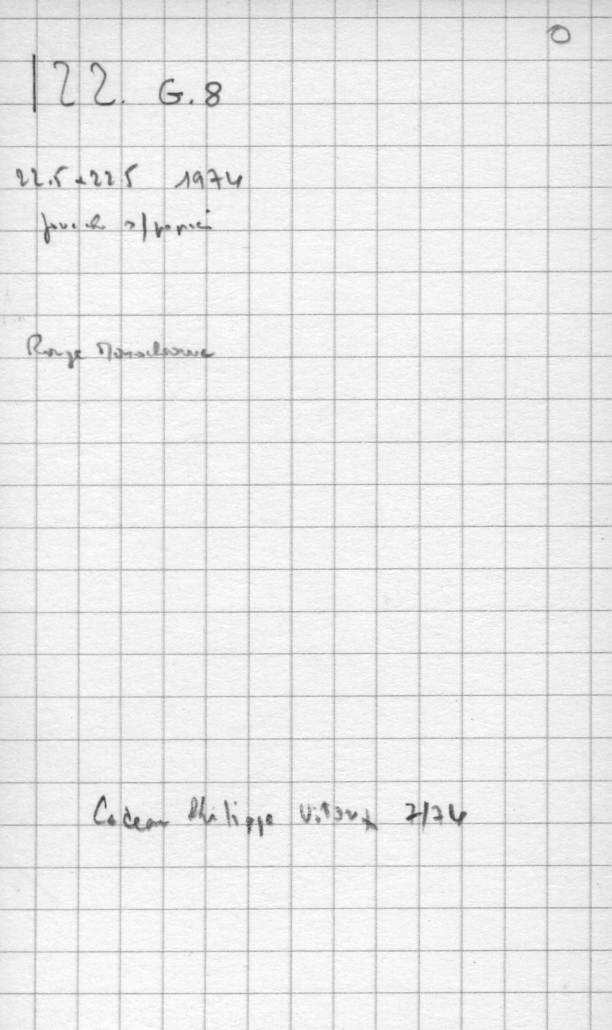 O
122. G.8
22.5 x 22 5 1974
gouache s/papier
Rouge Monochrome
Cadeau Philippe Vitoux 7/74